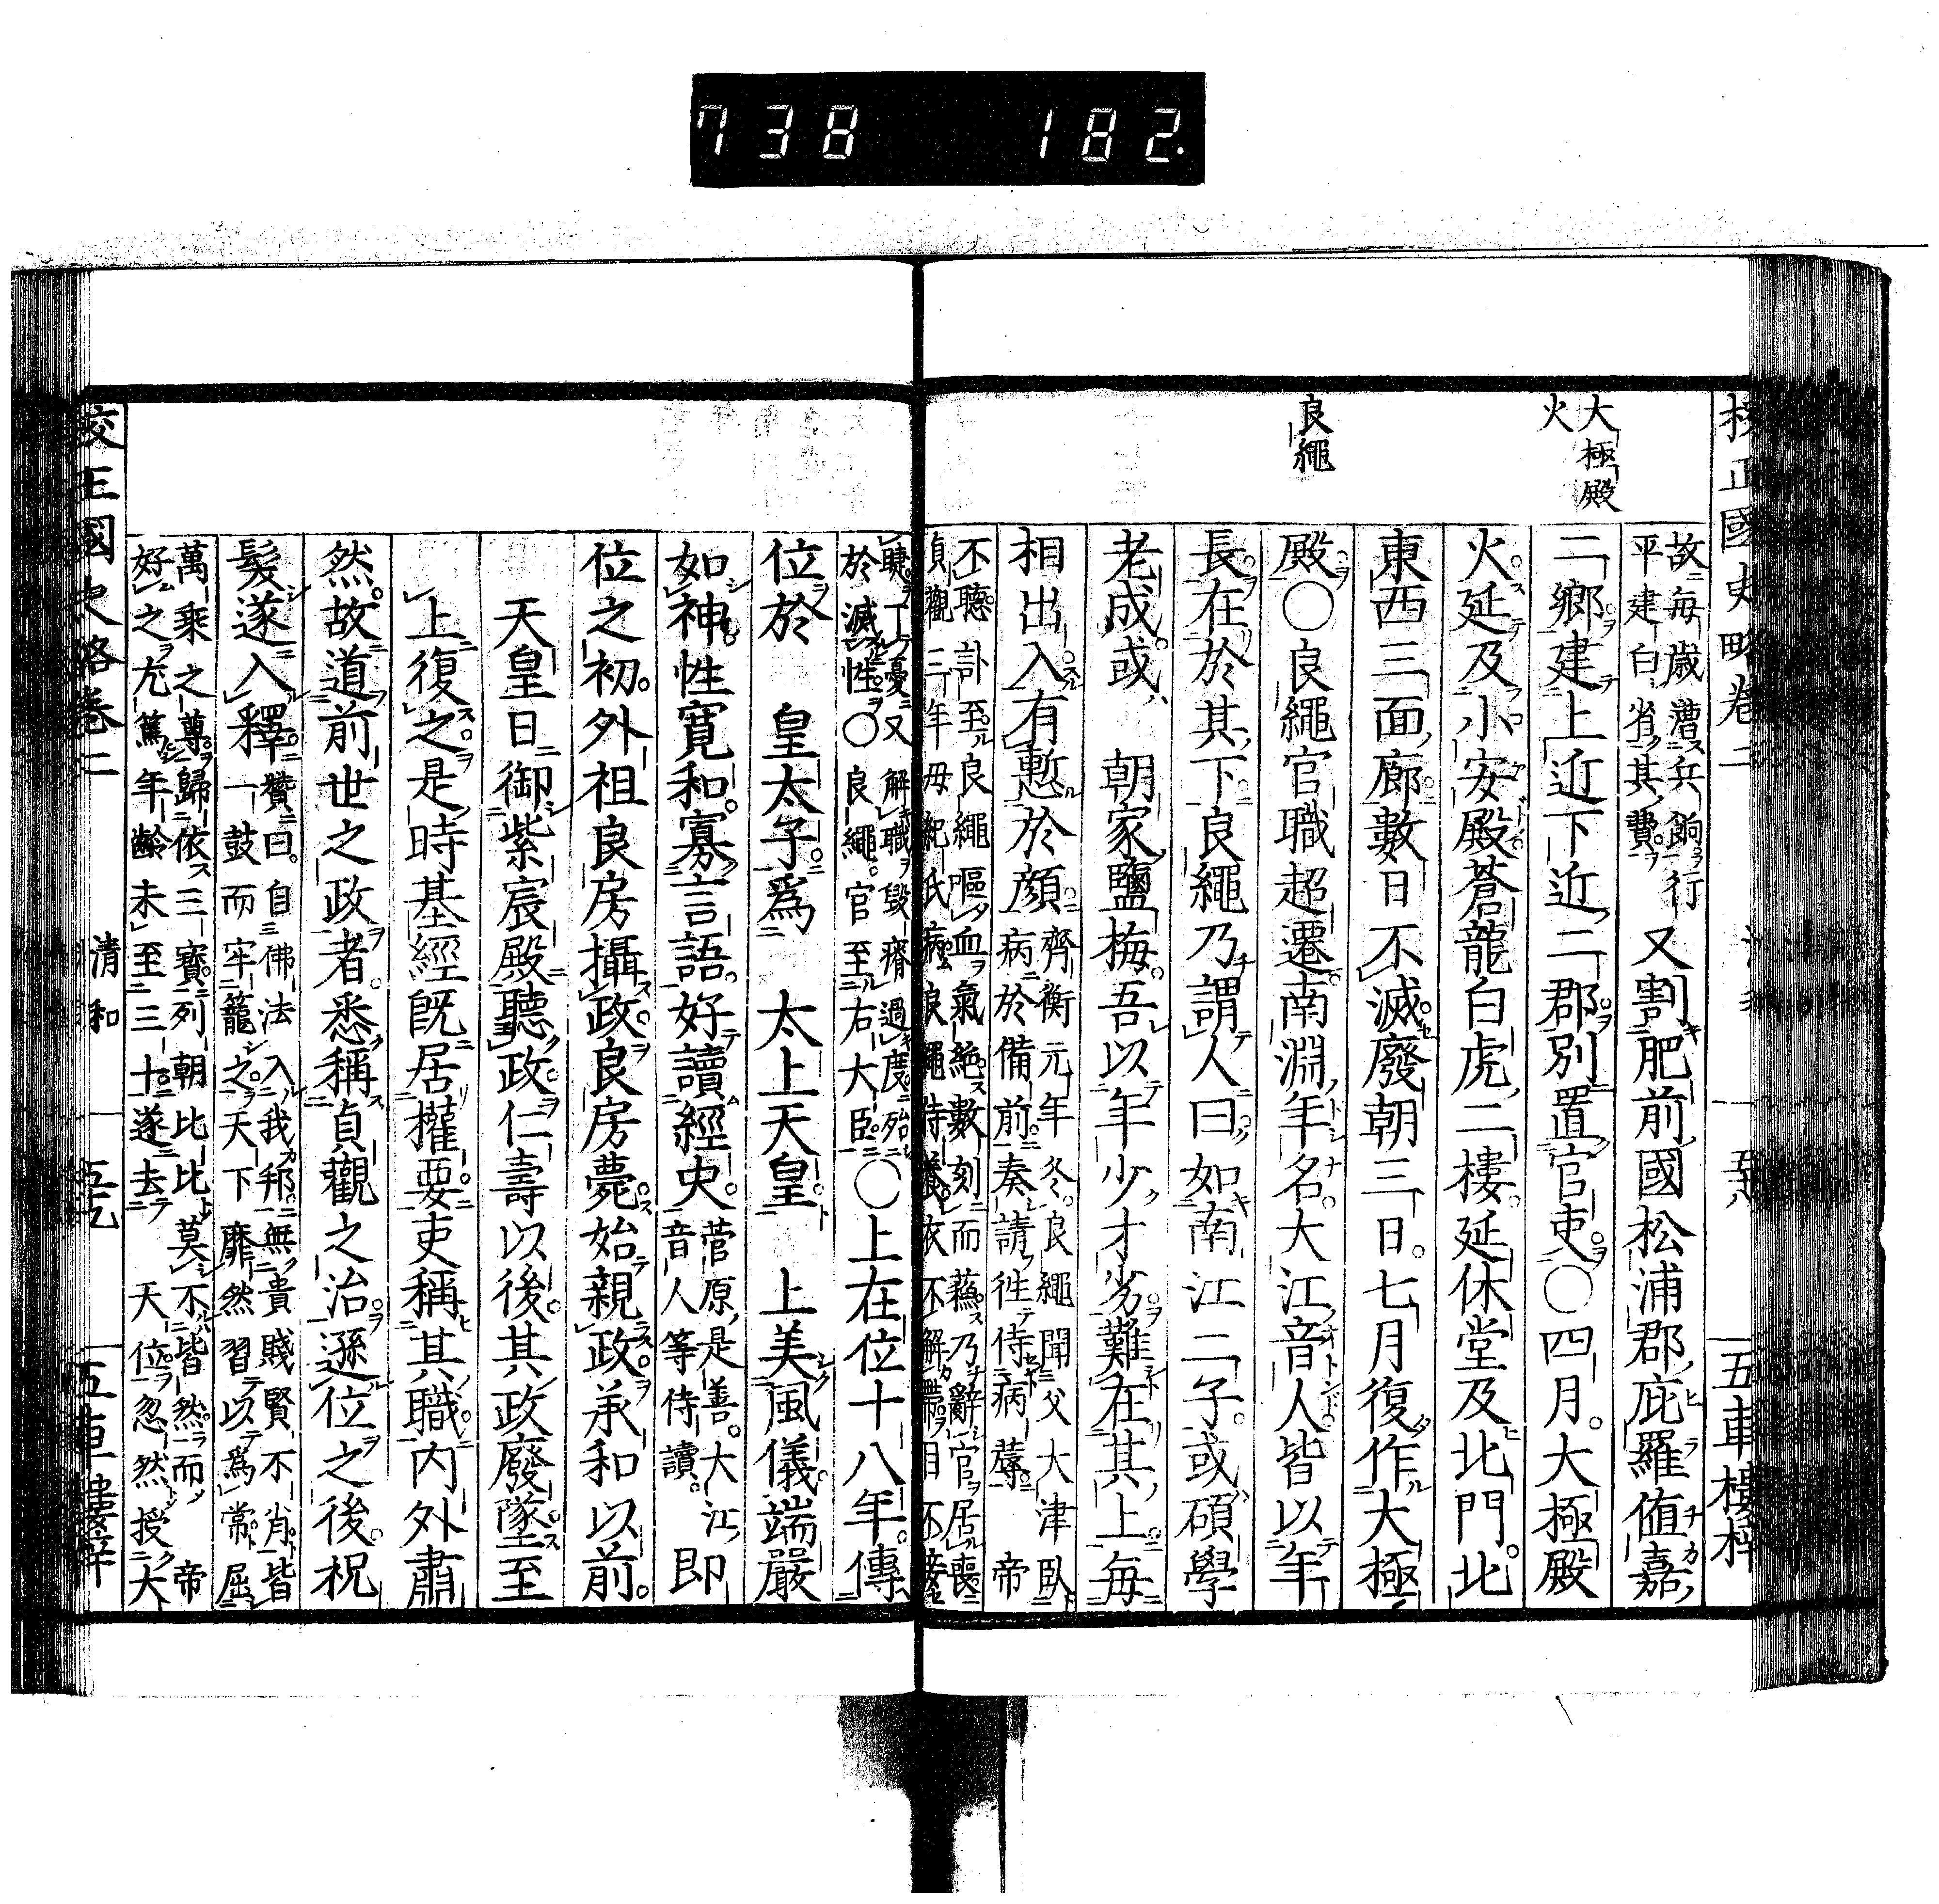 738 182.
校正國史略卷二
五車樓梓
大極殿
火
良繩
故每歲漕兵餉行
平建白省其費
又割肥前國松浦郡庇羅値嘉
二鄉建上近下近二郡別置官吏○四月大極殿
火延及小安殿蒼龍白虎二樓延休堂及北門北
東西三面廊數日不滅廢朝三日七月復作大極
殿○良繩官職超遷南淵年名大江音人皆以年
長在於其下良繩乃謂人曰如南江二子或碩學
老成或 朝家鹽梅吾以年少才劣難在其上每
相出入有慙於顏
齊衡元年冬良繩聞父大津臥
病於備前奏請往侍病蓐 帝
不聽訃至良繩嘔血氣絕數刻而蘇乃辭官居喪
貞觀三年母紀氏病良繩侍養衣不解帶目不接
睫丁憂又解職毀瘠過度殆
於滅性○良繩官至右大臣
○上在位十八年傳
位於 皇太子爲 太上天皇 上美風儀端嚴
如神性寬和寡言語好讀經史
菅原是善大江
音人等侍讀
即
位之初外祖良房攝政良房薨始親政承和以前
天皇日御紫宸殿聽政仁壽以後其政廢墜至
上復之是時基經既居權要吏稱其職內外肅
然故道前世之政者悉稱貞觀之治遜位之後祝
髮遂入釋
贊曰自佛法入我邦無貴賤賢不肖皆
一鼓而牢籠之天下靡然習以爲常屈
萬乘之尊歸依三寶列朝比比莫不皆然而 帝
好之尤篤年齡未至三十遂去 天位忽然授大
校正國史略卷二
清和
五車樓梓